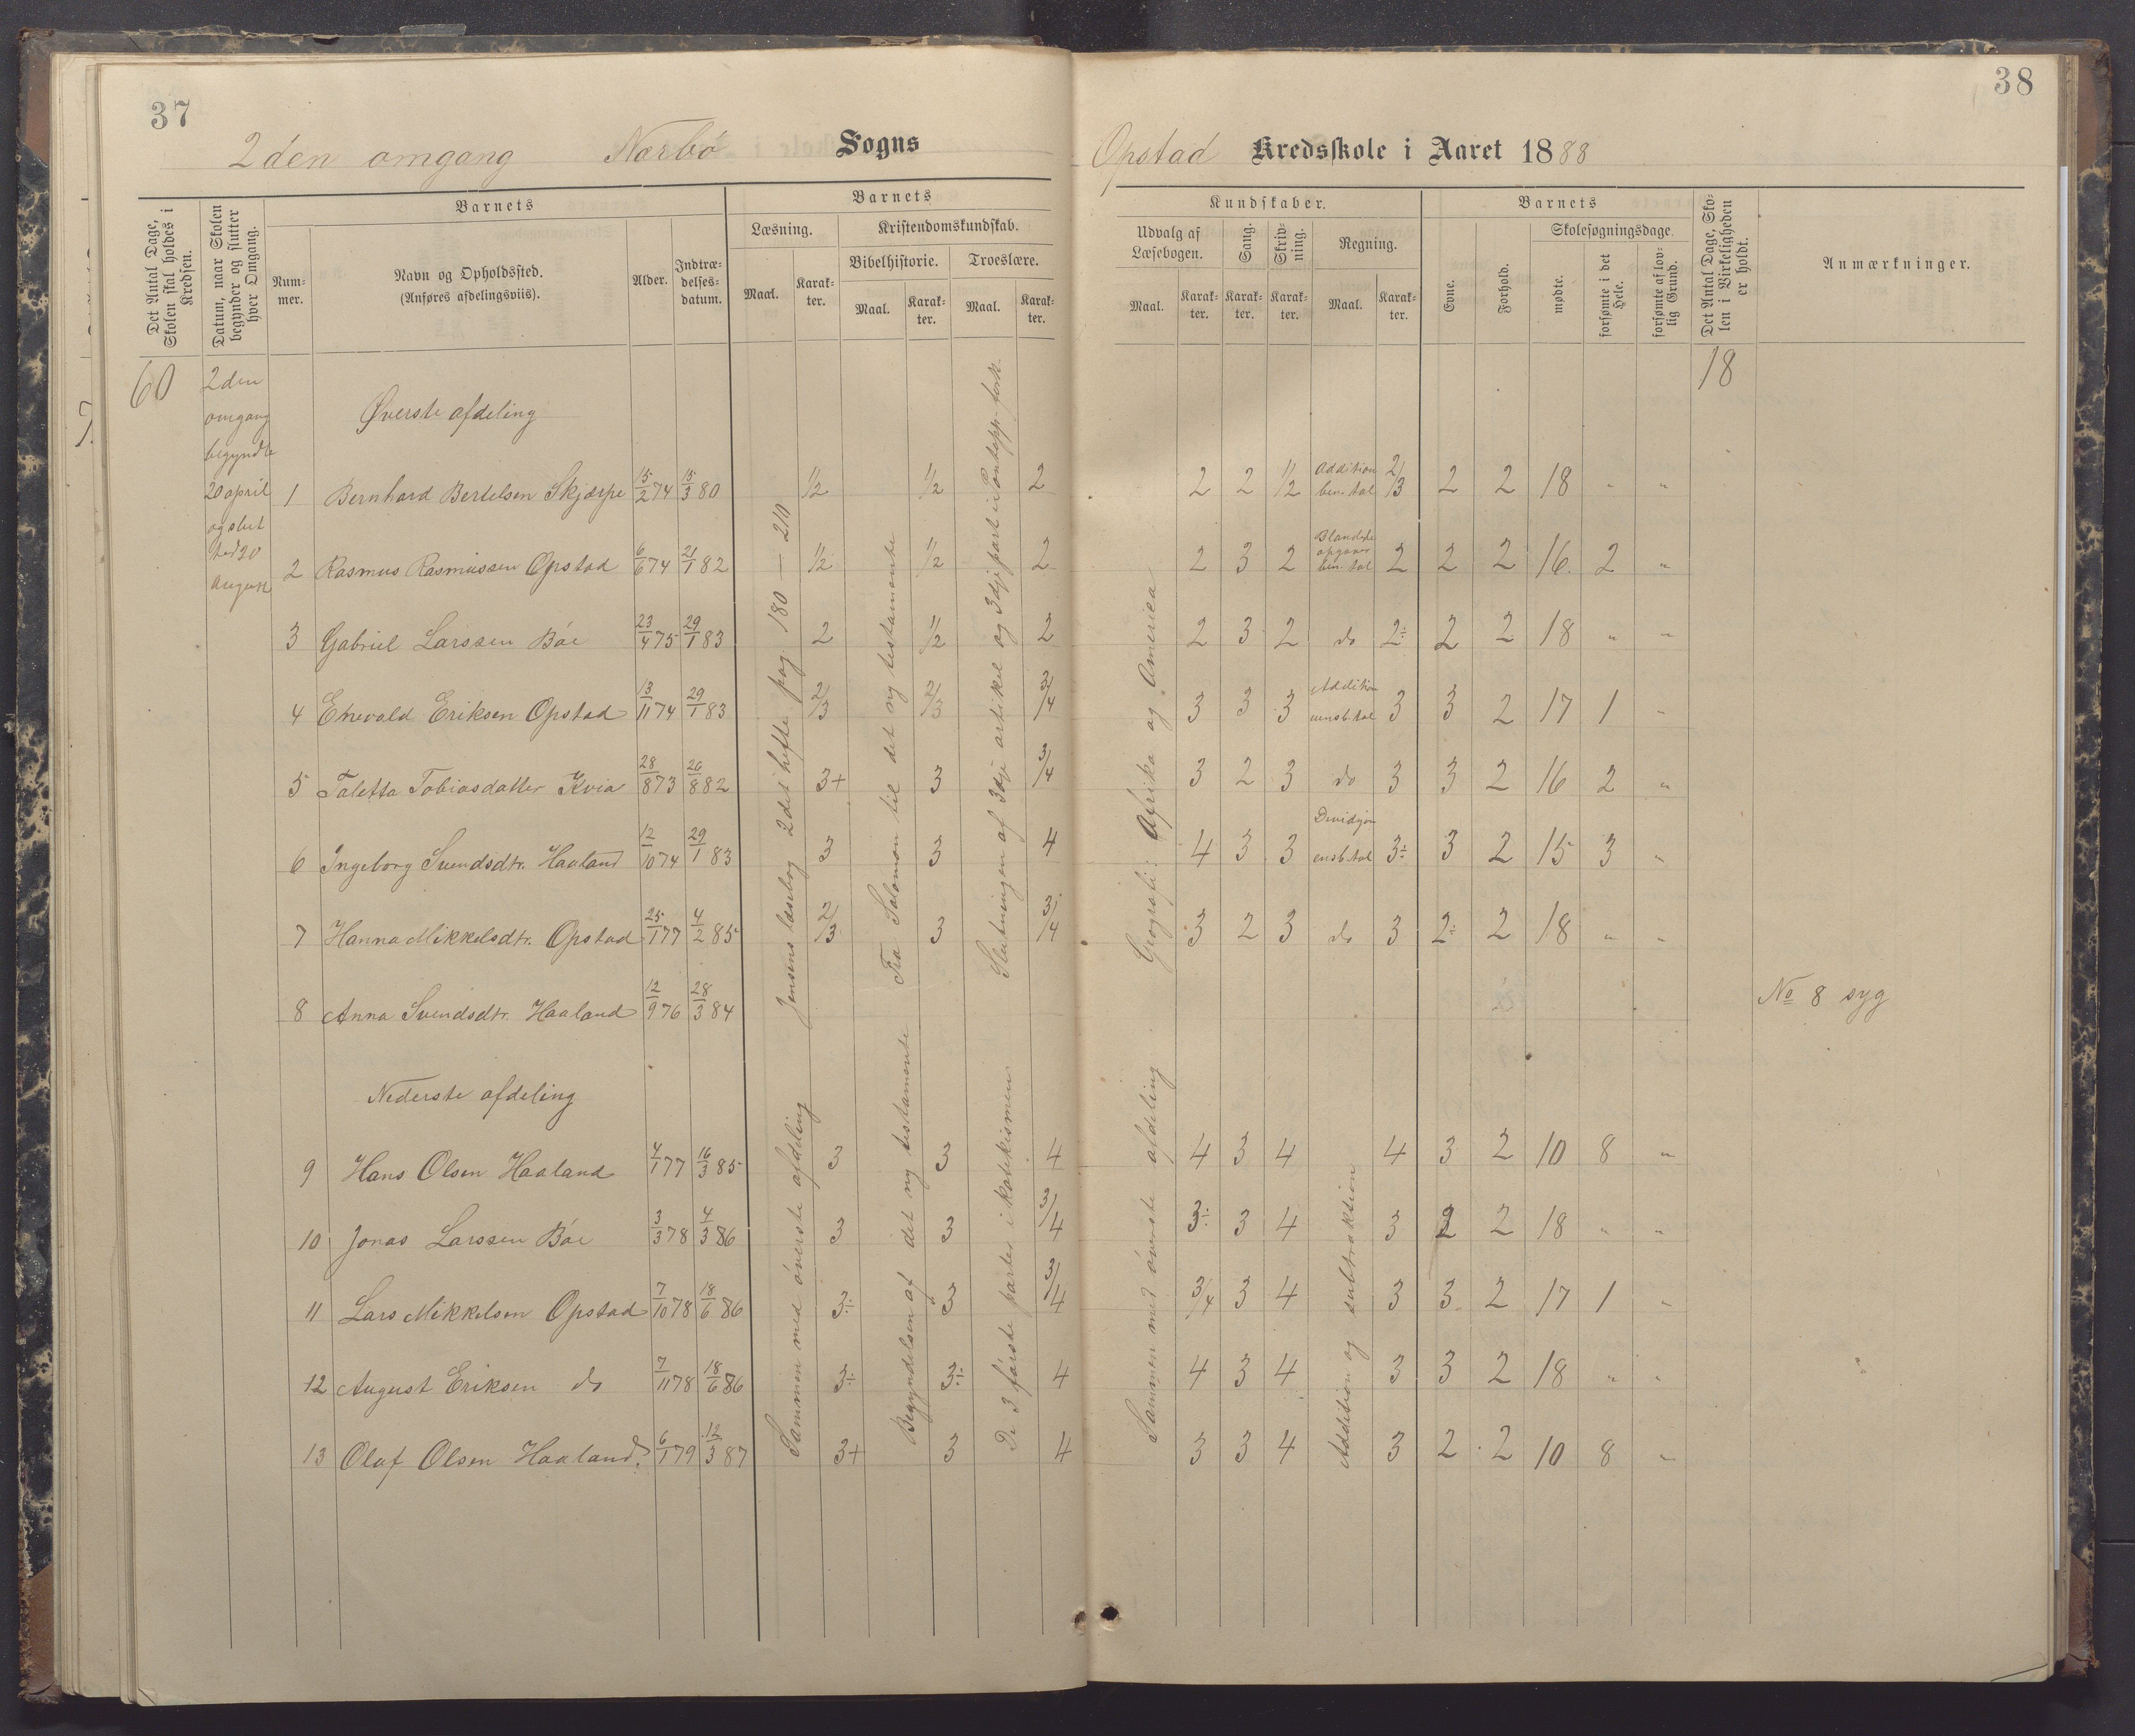 37
2den omgang Nærbö Sogns
Det Antal Dage, Skolen skal holdes i Kredsen.
Datum, naar Skolen begynder og slutter hver Omgang.
Barnets
Nummer.
Navn og Opholdssted.
(Anføres afdelingsviis).
Alder.
Indtrædelsesdatum.
Barnets
Læsning.
Maal.
Karakter.
Kristendomskundskab.
Bibelhistorie.
Maal.
Karakter.
Troeslære.
Maal.
Karakter.
60
2den
omgang
begyndte
20 april
og slut
ted 20
august
Øverste afdeling
1 Bernhard Bertelsen Skjærpe 15/2 74 15/3 80 1/2 1/2 2
2 Rasmus Rasmussen Opstad 6/6 74 21/1 82 1/2 1/2 2
3 Gabriel Larssen Böe 23/4 75 29/1 83 2 1/2 2
4 Enevald Eriksen Opstad 13/11 74 29/1 83 2/3 2/3 3/4
5 Taletta Tobiasdatter Kvia 28/8 73 26/8 82 3+ 3 3/4
6 Ingeborg Svendsdtr. Haaland 12/10 74 29/1 83 3 3 4
7 Hanna Mikkelsdtr. Opstad 25/1 77 4/2 85 2/3 3 3/4
8 Anna Svendsdtr. Haaland 12/9 76 28/3 84
Jensens læsebog 2det hefte pag. 180 — 210
Fra Salomon til det ny testamente
Slutningen af 3dje artikel og 3dje part i Pontopp. fork.
Nederste afdeling
9 Hans Olsen Haaland 4/1 77 16/3 85 3 3 4
10 Jonas Larssen Böe 3/3 78 4/3 86 3 3 3/4
11 Lars Mikkelsen Opstad 7/10 78 18/6 86 3÷ 3 3/4
12 August Eriksen do 7/11 78 18/6 86 3÷ 3÷ 4
13 Olaf Olsen Haaland. 6/1 79 12/3 87 3+ 3 4
Sammen med överste afdeling
Begyndelsen af det ny testamente
De 3 förste parter i katekismen
38
Opstad Kredsskole i Aaret 1888
Kundskaber.
Udvalg af Læsebogen.
Maal.
Karakter.
Sang.
Karakter.
Skrivning.
Karakter.
Regning.
Maal.
Karakter.
Barnets
Evne.
Forhold.
Skolesøgningsdage.
mødte.
forsømte i det Hele.
forsømte af lovlig Grund.
Det Antal Dage, Skolen i Virkeligheden er holdt.
Anmærkninger.
18
2 2 1/2 Addition ben. tal 2/3 2 2 18 " "
2 3 2 Blandede opgaver ben. tal 2 2 2 16 2 "
2 3 2 do 2÷ 2 2 18 " "
3 3 3 Addition uensb. tal 3 3 2 17 1 "
3 2 3 do 3 3 2 16 2 "
4 3 3 Devidsjon ensb. tal 3÷ 3 2 15 3 "
3 2 3 do 3 2÷ 2 18 " "
No 8 syg
Geografi: Afrika og America
4 3 4 4 3 2 10 8 "
3÷ 3 4 3 2 2 18 " "
3/4 3 4 3 3 2 17 1 "
4 3 4 3 3 2 18 " "
3 3 4 3 2 2 10 8 "
Sammen med överste afdeling
Addition og subtraktion